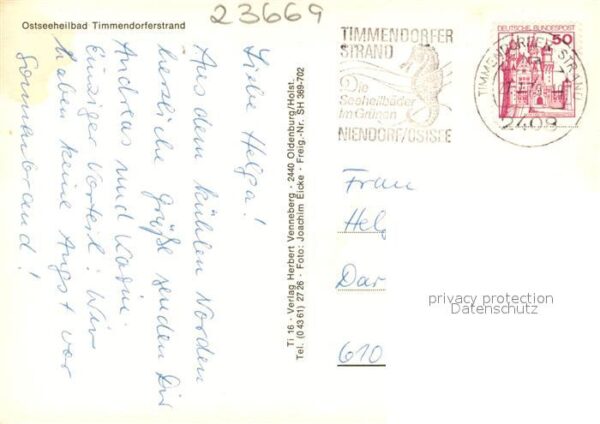 23669
Ostseeheilbad Timmendorferstrand
Liebe Helga!
Aus dem kühlen Norden
herzliche Grüße senden Dir
Andreas und Karin.
Einziger Vorteil: Wir
haben keine Angst vor
Sonnenbrand!
Ti 16 - Verlag Herbert Venneberg - 2440 Oldenburg/Holst.
Tel. (0 43 61) 27 26 - Foto: Joachim Eicke - Freig.-Nr. SH 369-702
TIMMENDORFER
STRAND
Die
Seeheilbäder
im Grünen
NIENDORF/OSTSEE
DEUTSCHE BUNDESPOST
50
TIMMENDORFER STRAND
2409
Frau
Helg
Dar
610
privacy protection
Datenschutz